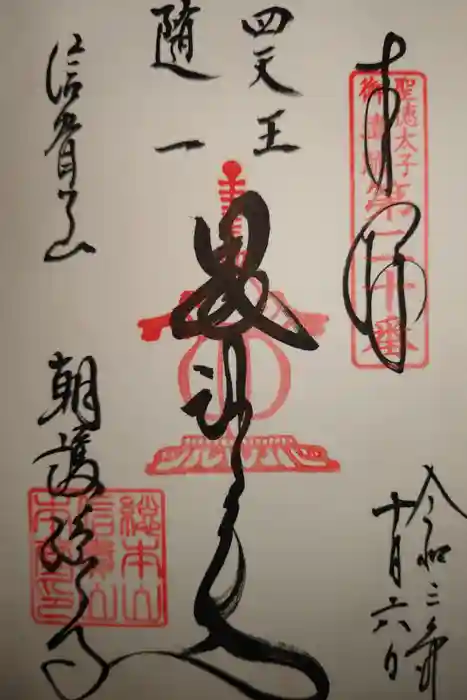 奉拝
聖徳太子
御遺跡
第二十番
令和三年
十月六日
四天王
随一
信貴山
朝護孫子
総本山
信貴山